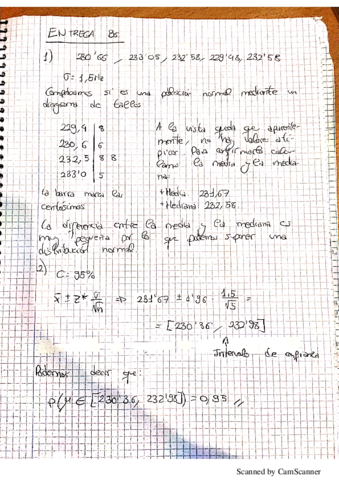 ENTREGA B5
1) 230'66, 233'05, 232'58, 229'48, 232'58
σ = 1,5Hz
Comprobamos si es una población normal mediante un
diagrama de tallos
229,4 | 8
230,6 | 6
232,5 | 8 8
233'0 | 5
A la vista queda que aparente-
mente, no hay valores atí-
picos. Para confirmarlo calcu-
lamos la media y la media-
na:
* Media: 231,67
* Mediana: 232,58
la barra marca las
centésimas
La diferencia entre la media y la mediana es
muy pequeña por lo que podemos suponer una
distribución normal.
2) C = 95%
x̄ ± z* σ/√n ⇒ 231'67 ± 1'96 · 1.5/√5 =
= [230'36, 232'98]
Intervalo de confianza
Podemos decir que:
P(μ ∈ [230'36, 232'98]) = 0,95
Scanned by CamScanner